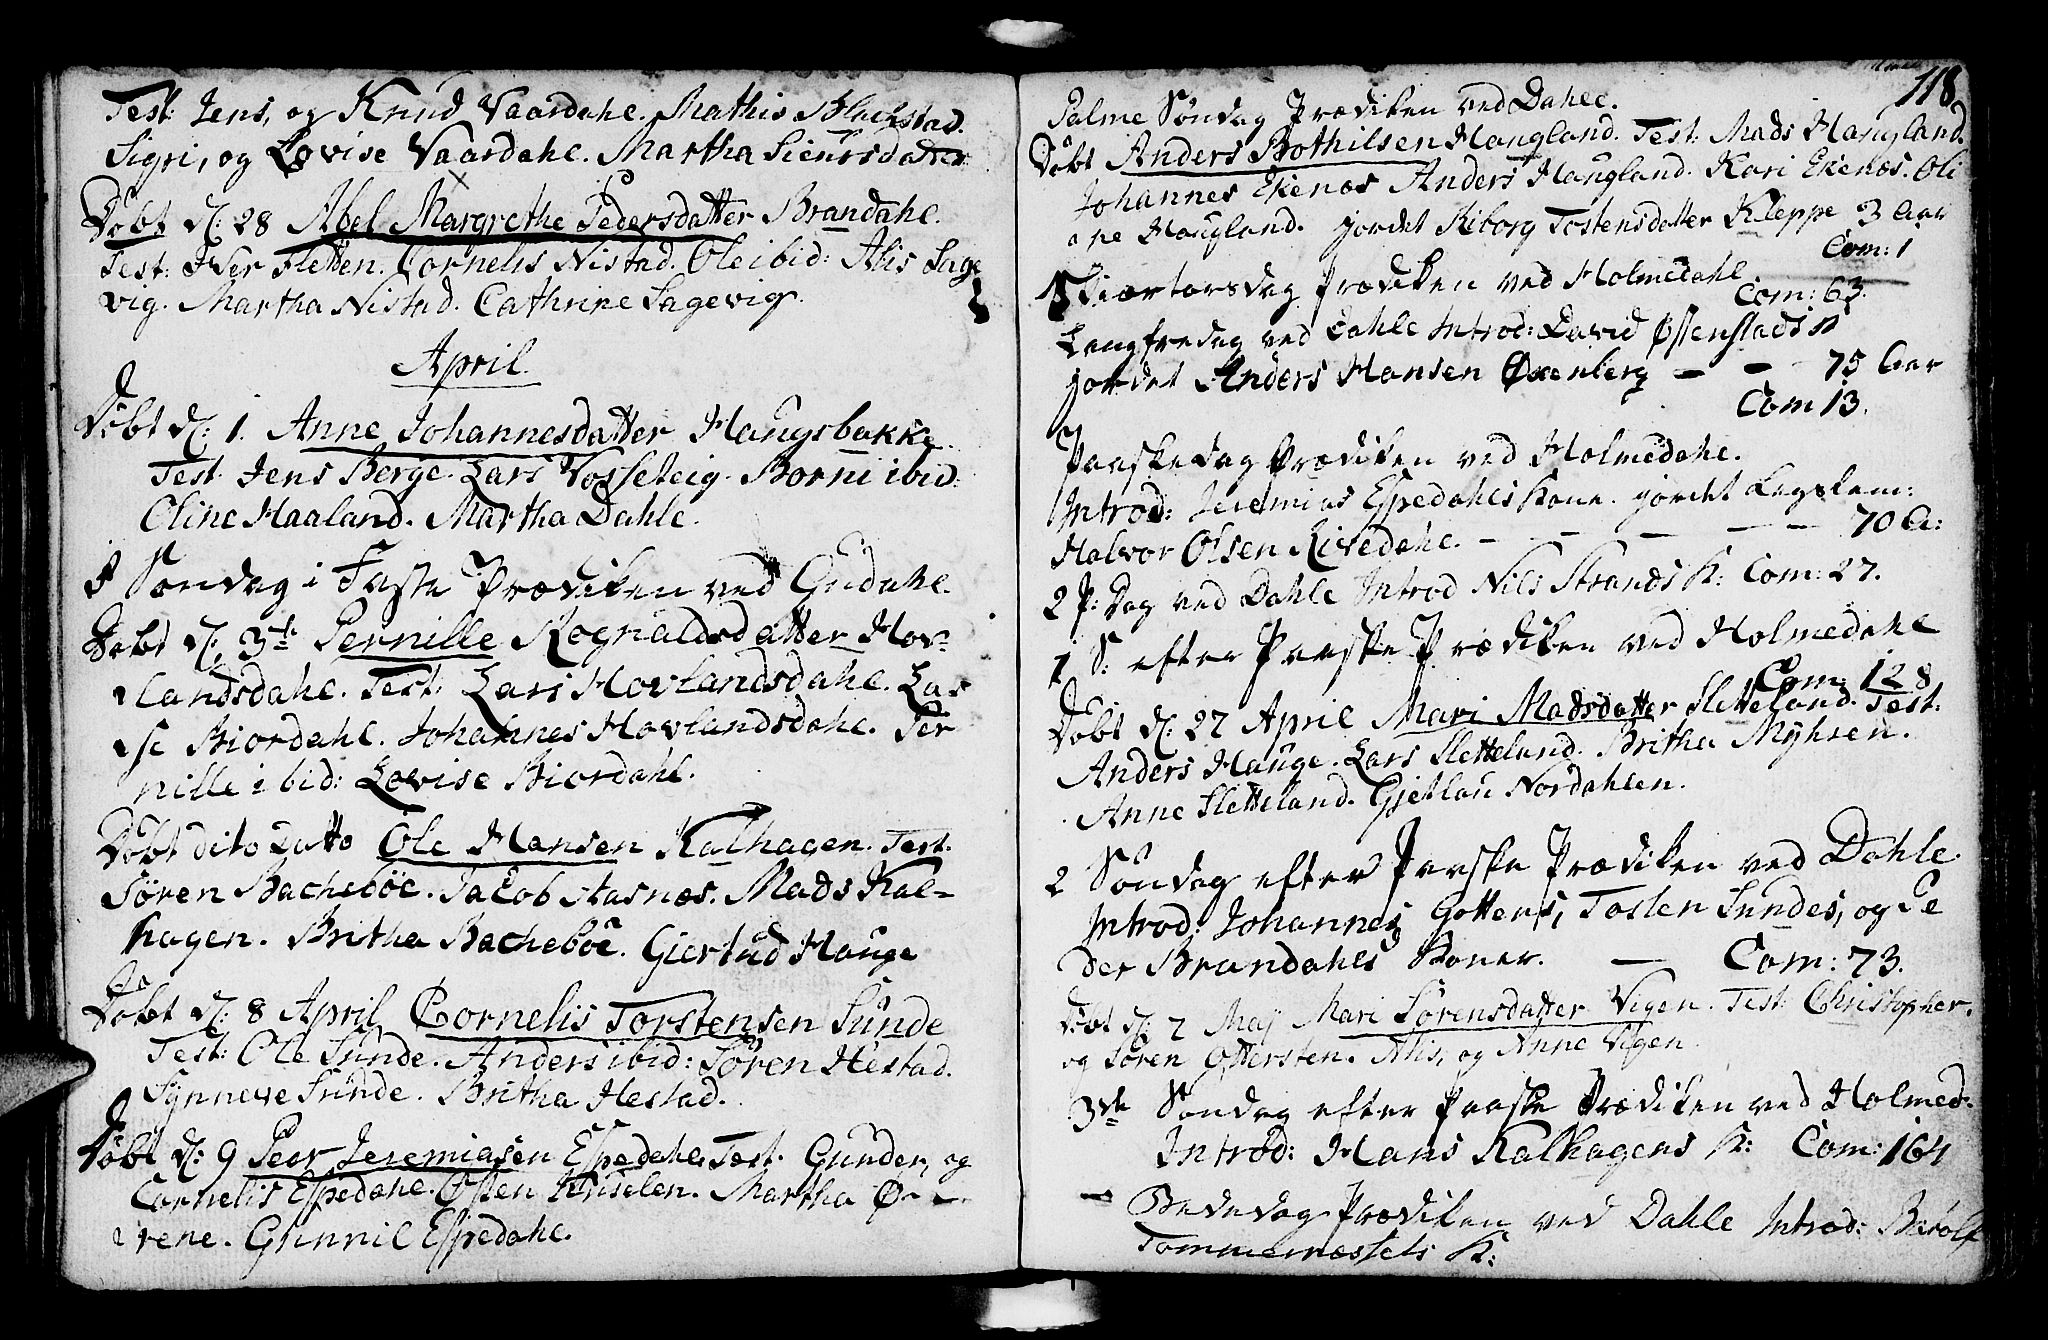 Test: Jens, og Knud Vaardahl. Mathis Blachstad.
Sigri, og Lovise Vaardahl. Martha Sieursdatter.
Döbt d: 28 Abel Margrethe Pedersdatter Brandahl.
Test: Iver Fletten. Cornelis Nistad. Ole ibid: Alis Sage
vig. Martha Nistad. Cathrine Sagevig.
April.
Döbt d: 1. Anne Johannesdatter Haugsbakke.
Test Jens Berge. Lars Vosseteig. Borni ibid:
Oline Haaland. Martha Dahle.
Søndag i Faste Prædiken ved Gudahl.
Döbt d: 3de Pernille Rognaldsdatter Hov-
landsdahl. Test: Lars Hovlandsdahl. Las
se Biordahl. Johannes Hovlandsdahl. Per
nille ibid: Lovise Biordahl.
Döbt dito datto Ole Hansen Kalhagen. Test.
Sören Bacheböe. Jacob Aasnæs. Mads Kal-
hagen. Britha Bacheböe. Giertud Hauge
Döbt d: 8 April Cornelis Torstensen Sunde
Test: Ole Sunde. Anders ibid: Sören Hestad.
Synneve Sunde. Britha Hestad.
Döbt d: 9 Peer Jeremiasen Espedahl. Test. Gunder, og
Cornelis Espedahl. Osten Huselen. Martha Ø
rene. Gunnil Espedahl.
118
Palme Søndag Prædiken ved Dahle.
Döbt Anders Bothilsen Haugland. Test: Mads Haugland.
Johannes Ekenæs Anders Haugland. Kari Ekenæs. Oli
ne Haugland. jordet Siborg Tostensdatter Kleppe 3 Aar
Com: 1
Skiærtorsdag Prædiken ved Holmedahl. Com: 63.
Langfredag ved Dahle Introd: David Østenstads K
jordet Anders Hansen Øxenberg — — 75 Aar
Com 13.
Paaskedag Prædiken ved Holmedahl.
Introd: Jeremias Espedahls Kone. jordet Legslem:
Halvor Olsen Rivedahl. — — — — — 70 A:
2 P: Dag ved Dahle Introd Nils Strands K: Com: 27.
1 S: efter Paaske Prædiken ved Holmedahl
Com: 128
Döbt d: 27 April Mari Madsdatter Sletteland. Test:
Anders Hauge. Lars Sletteland. Britha Myhren.
Anne Sletteland. Gjetlau Nordahlen.
2 Søndag efter Paaske Prædiken ved Dahle
Introd: Johannes Gotters, Tosten Sundes, og Pe
der Brandahls Koner. — Com: 73.
Döbt d: 2 Maj Mari Sörensdatter Vigen. Test: Christopher.
og Sören Ottersten. Alis, og Anne Vigen
3de Søndag efter Paaske Prædiken ved Holmed:
Introd: Hans Kalhagens K: Com: 164
— Bededag Prædiken ved Dahle Introd: Berölf
Tommernæssets K: